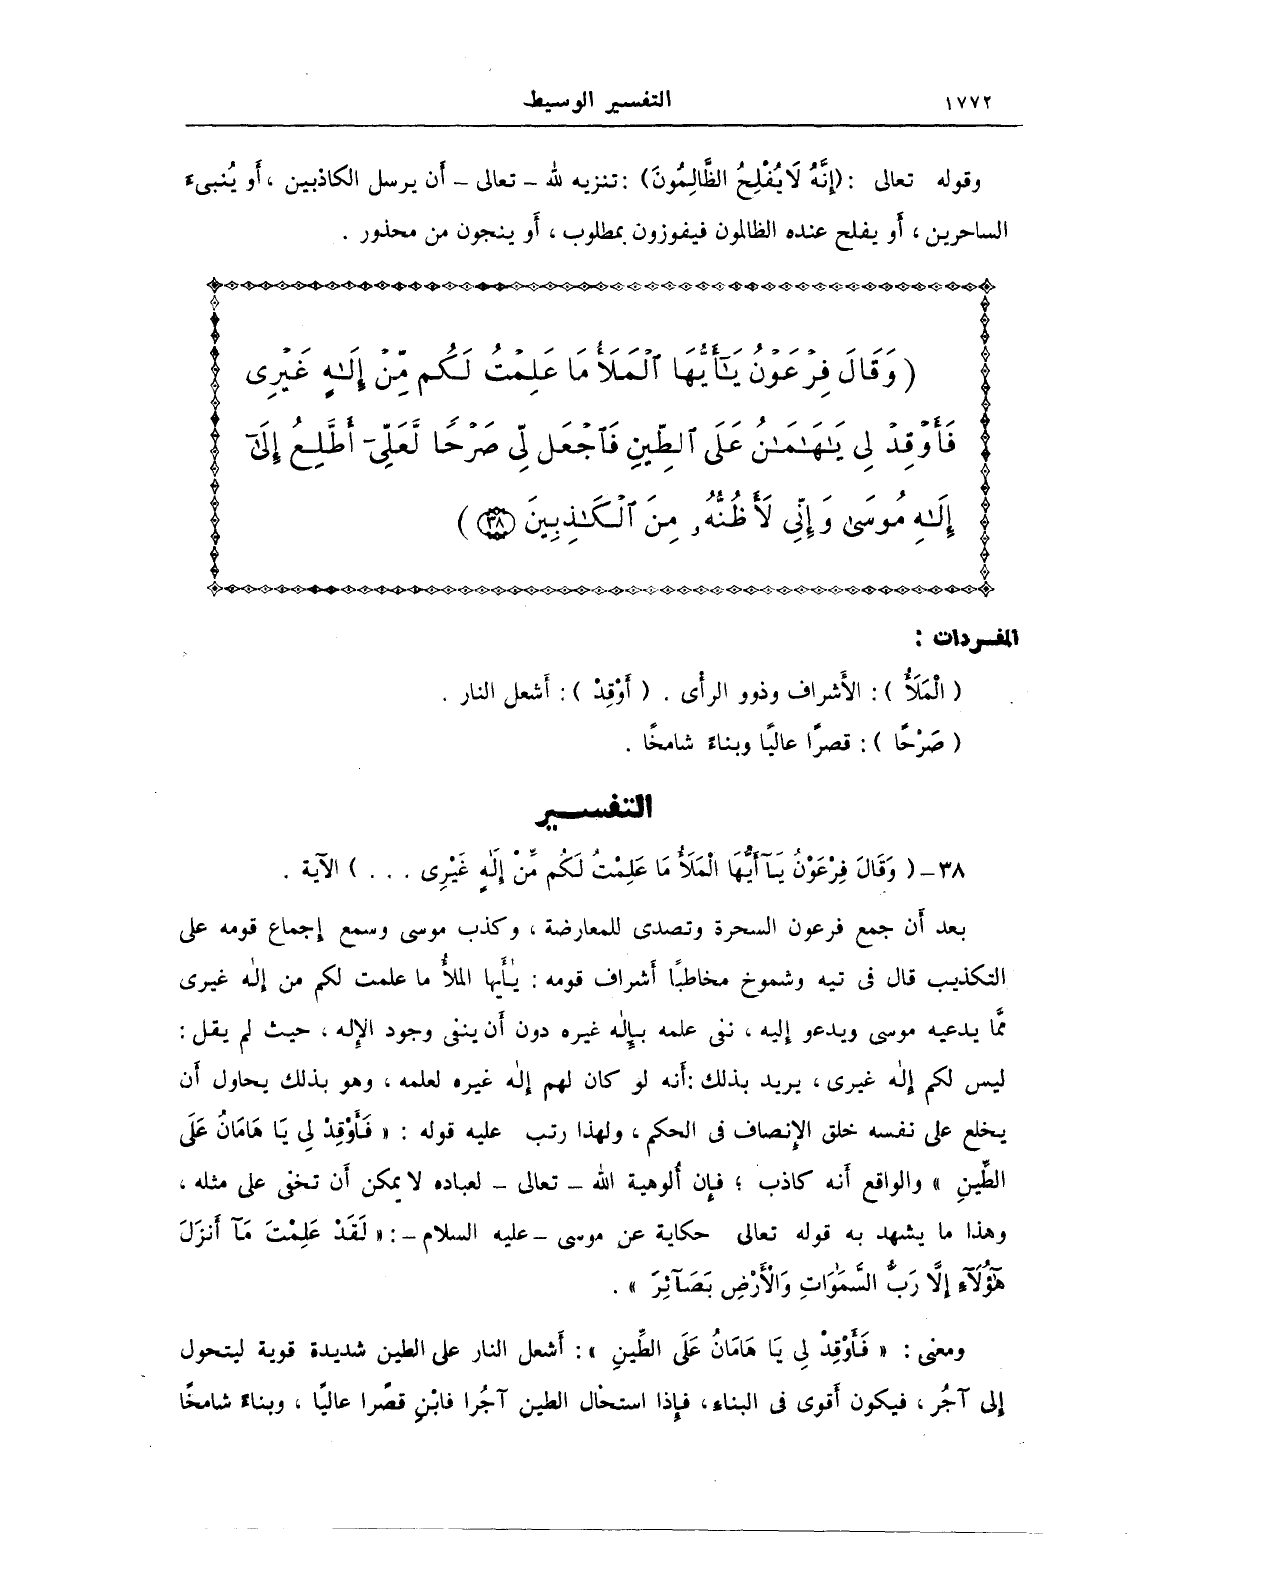 ١٧٧٢ التفسير الوسيط
وقوله تعالى : (إِنَّهُ لَا يُفْلِحُ الظَّالِمُونَ) : تنزيه لله – تعالى – أن يرسل الكاذبين ، أو يُنبىء
الساحرين ، أو يفلح عنده الظالمون فيفوزون بمطلوب ، أو ينجون من محذور .
( وَقَالَ فِرْعَوْنُ يَـٰٓأَيُّهَا ٱلْمَلَأُ مَا عَلِمْتُ لَكُم مِّنْ إِلَـٰهٍ غَيْرِى
فَأَوْقِدْ لِى يَـٰهَـٰمَـٰنُ عَلَى ٱلطِّينِ فَٱجْعَل لِّى صَرْحًا لَّعَلِّىٓ أَطَّلِعُ إِلَىٰٓ
إِلَـٰهِ مُوسَىٰ وَإِنِّى لَأَظُنُّهُۥ مِنَ ٱلْكَـٰذِبِينَ (٣٨) )
المفـردات :
( الْمَلَأُ ) : الأشراف وذوو الرأى . ( أَوْقِدْ ) : أشعل النار .
( صَرْحًا ) : قصرًا عاليًا وبناءً شامخًا .
التفســير
٣٨ – ( وَقَالَ فِرْعَوْنُ يَآ أَيُّهَا الْمَلَأُ مَا عَلِمْتُ لَكُم مِّنْ إِلَـٰهٍ غَيْرِى . . . ) الآية .
بعد أن جمع فرعون السحرة وتصدى للمعارضة ، وكذب موسى وسمع إجماع قومه على
التكذيب قال فى تيه وشموخ مخاطبًا أشراف قومه : يٰأَيها الملأُ ما علمت لكم من إلٰه غيرى
ممَّا يدعيه موسى ويدعو إليه ، نفى علمه بإلٰه غيره دون أن ينفى وجود الإله ، حيث لم يقل :
ليس لكم إلٰه غيرى ، يريد بذلك : أنه لو كان لهم إلٰه غيره لعلمه ، وهو بذلك يحاول أن
يخلع على نفسه خلق الإنصاف فى الحكم ، ولهذا رتب عليه قوله : « فَأَوْقِدْ لِى يَا هَامَانُ عَلَى
الطِّينِ » والواقع أنه كاذب ؛ فإن ألوهية الله – تعالى – لعباده لا يمكن أن تخفى على مثله ،
وهذا ما يشهد به قوله تعالى حكاية عن موسى – عليه السلام – : « لَقَدْ عَلِمْتَ مَآ أَنزَلَ
هَٰٓؤُلَآءِ إِلَّا رَبُّ السَّمَٰوَاتِ وَالْأَرْضِ بَصَآئِرَ » .
ومعنى : « فَأَوْقِدْ لِى يَا هَامَانُ عَلَى الطِّينِ » : أشعل النار على الطين شديدة قوية ليتحول
إلى آجُر ، فيكون أقوى فى البناء ، فإذا استحال الطين آجُرا فابْنِ قصْرا عاليًا ، وبناءً شامخًا